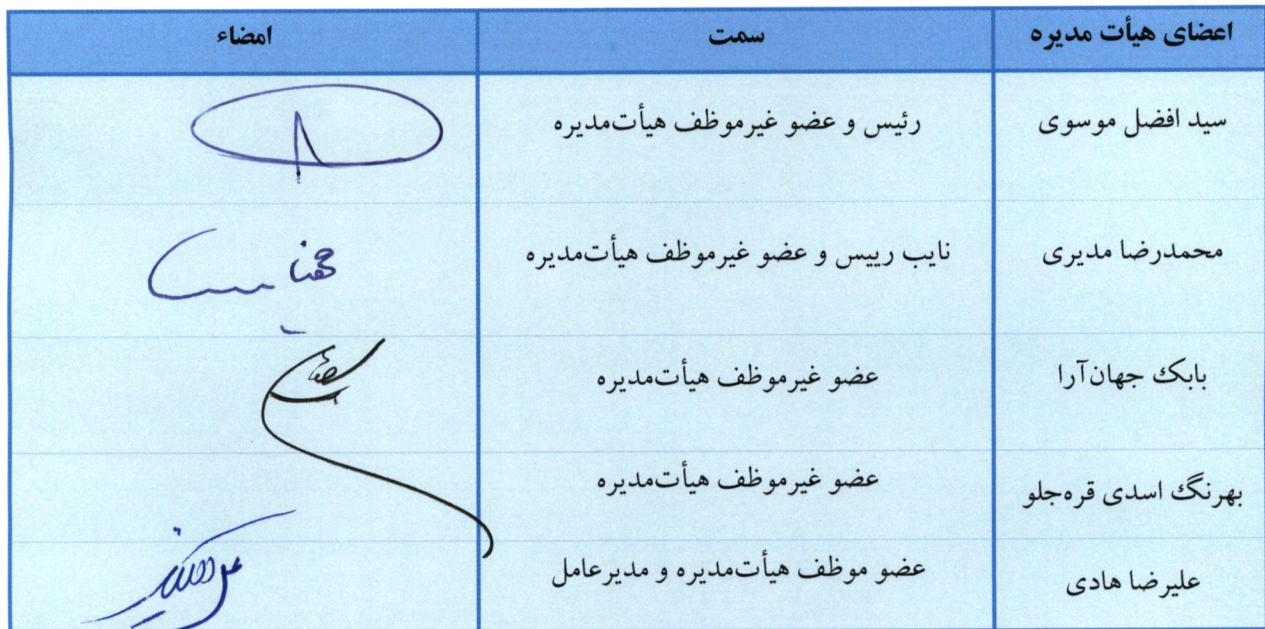 اعضای هیأت مدیره سمت امضاء
سید افضل موسوی رئیس و عضو غیرموظف هیأت‌مدیره
محمدرضا مدیری نایب رییس و عضو غیرموظف هیأت‌مدیره
بابک جهان‌آرا عضو غیرموظف هیأت‌مدیره
بهرنگ اسدی قره‌جلو عضو غیرموظف هیأت‌مدیره
علیرضا هادی عضو موظف هیأت‌مدیره و مدیرعامل